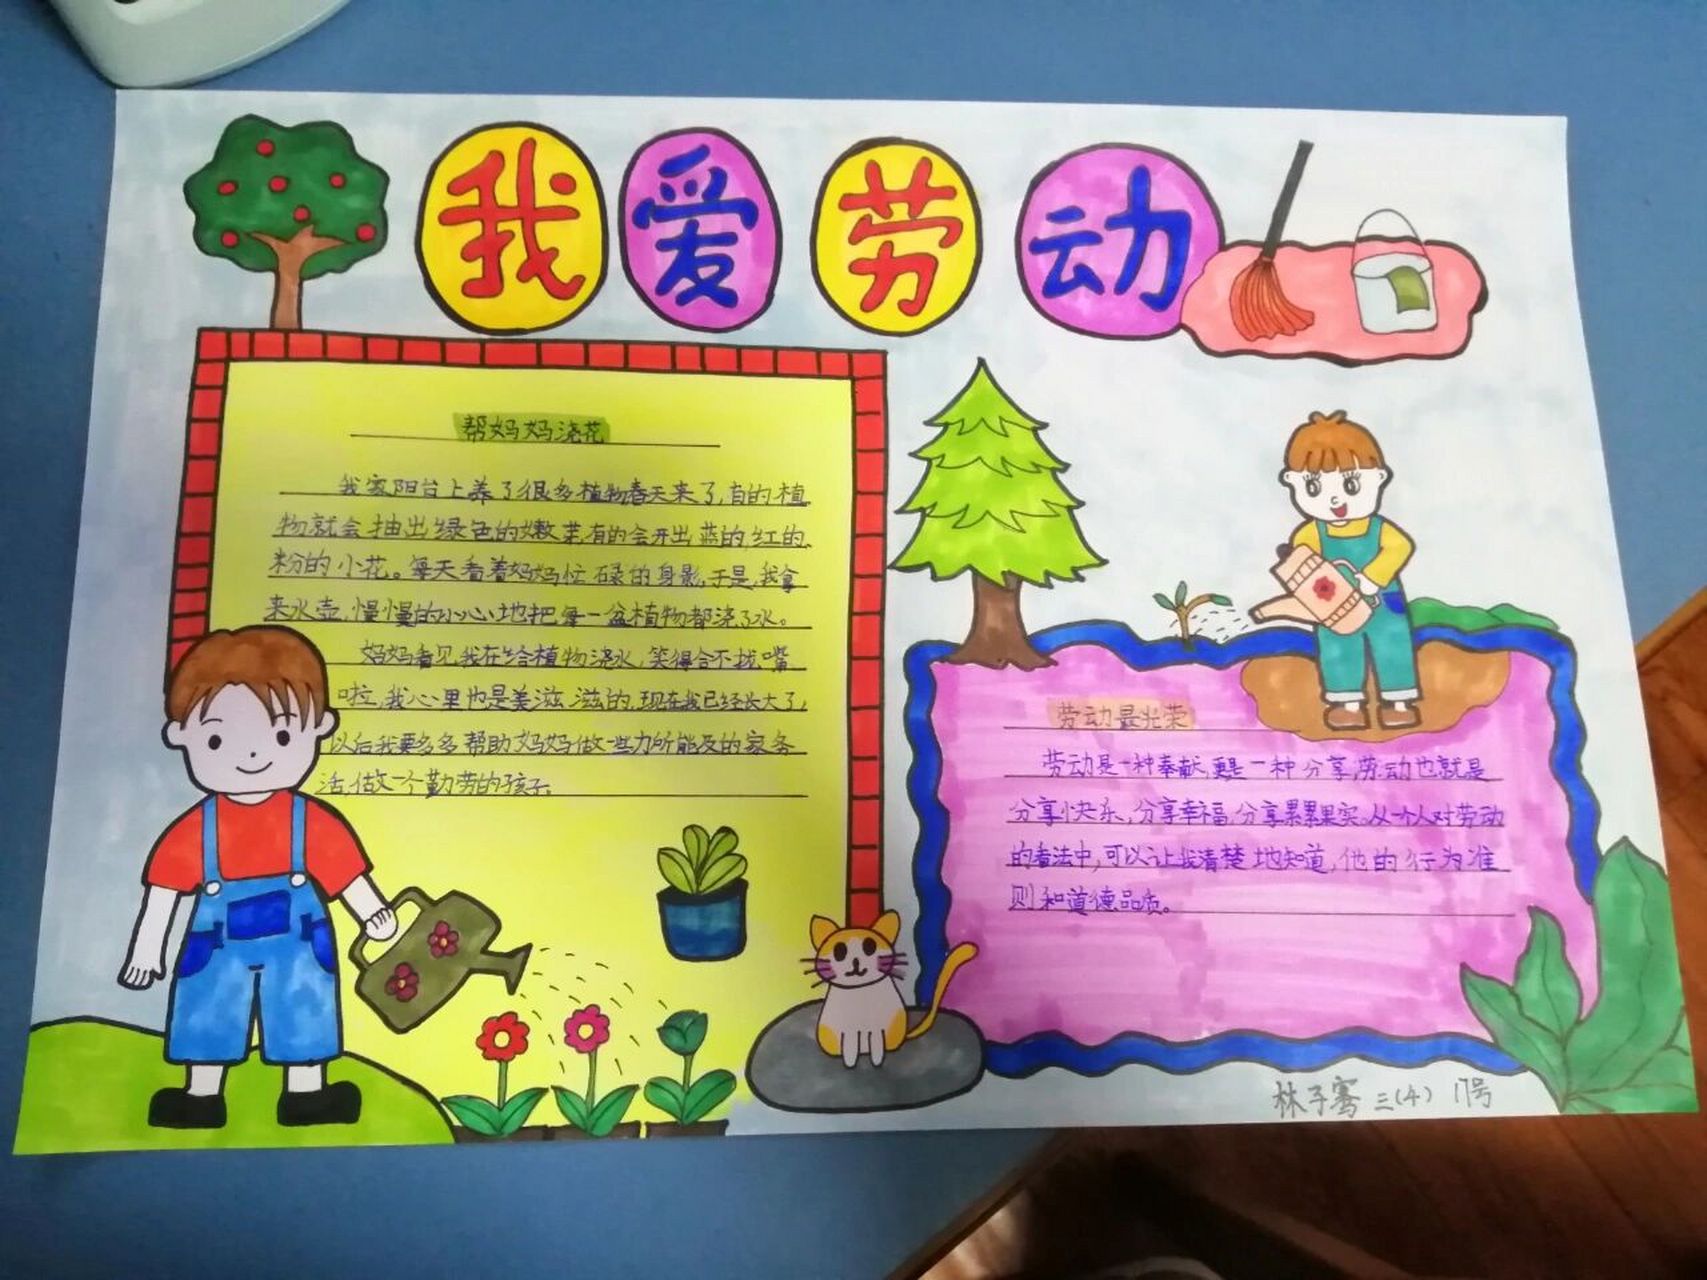 我爱劳动
帮妈妈浇花
我家阳台上养了很多植物春天来了,有的植
物就会抽出绿色的嫩芽,有的会开出 的,红的、
粉的小花。每天看着妈妈忙碌的身影,于是,我拿
来水壶,慢慢的小心地把每一盆植物都浇了水。
妈妈看见我在给植物浇水,笑得合不拢嘴
啦,我心里也是美滋滋的,现在我已经长大了,
以后我要多多帮助妈妈做一些力所能及的家务
活,做一个勤劳的孩子。
劳动最光荣
劳动是一种奉献,更是一种分享,劳动也就是
分享快乐,分享幸福,分享累累果实。从一个人对劳动
的看法中,可以让我清楚地知道,他的行为准
则和道德品质。
林子骞 三(4) 17号